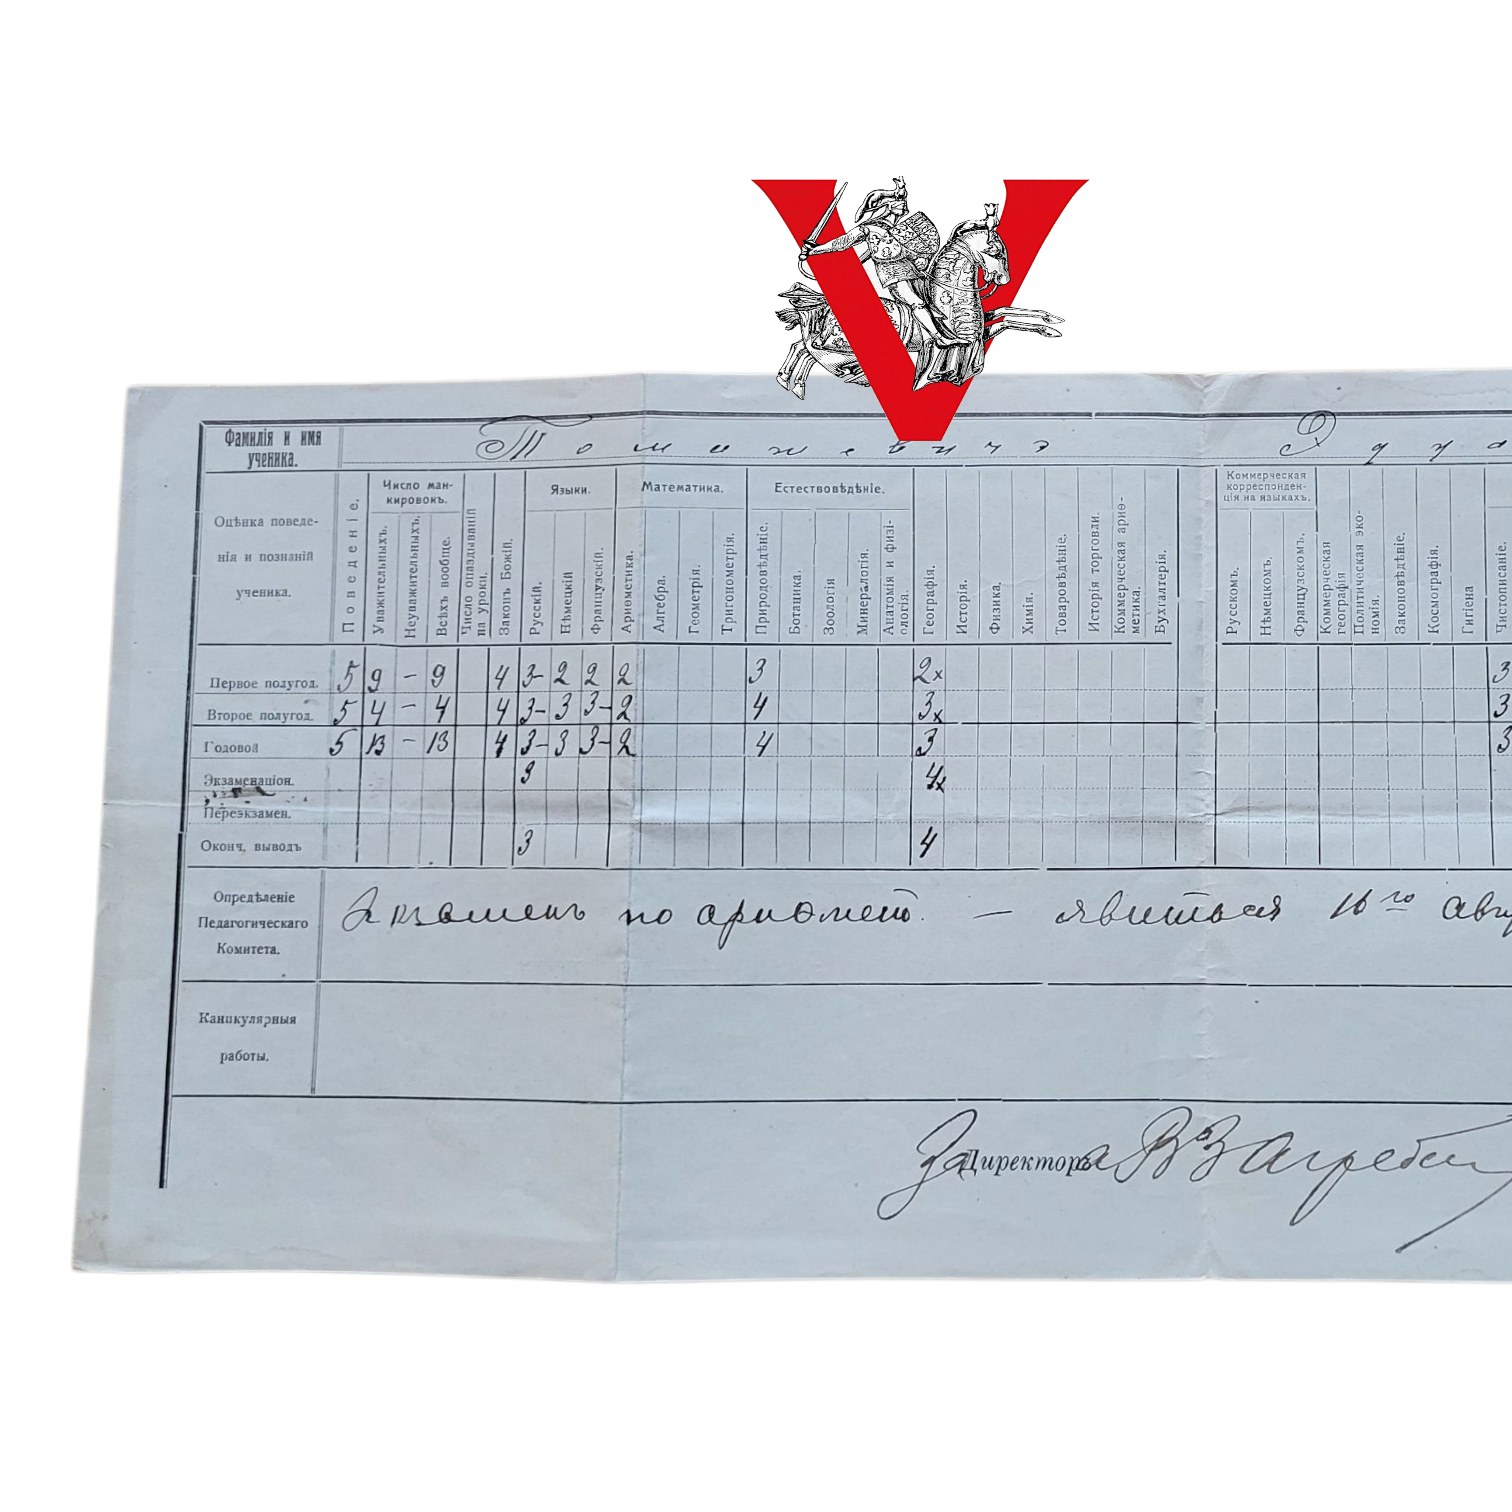 Фамилія и имя
ученика.
Томашевичъ Эдуа
Оцѣнка поведе-
нія и познаній
ученика.
Поведеніе.
Число ман-
кировокъ.
Уважительныхъ.
Неуважительныхъ.
Всѣхъ вообще.
Число опаздываній
на уроки.
Законъ Божій.
Языки.
Русскій.
Нѣмецкій
Французскій.
Ариѳметика.
Математика.
Алгебра.
Геометрія.
Тригонометрія.
Естествовѣдѣніе.
Природовѣдѣніе.
Ботаника.
Зоологія
Минералогія.
Анатомія и физі-
ологія.
Географія.
Исторія.
Физика.
Химія.
Товаровѣдѣніе.
Исторія торговли.
Коммерческая ариѳ-
метика.
Бухгалтерія.
Коммерческая
корреспонден-
ція на языкахъ.
Русскомъ.
Нѣмецкомъ.
Французскомъ.
Коммерческая
географія
Политическая эко-
номія.
Законовѣдѣніе.
Космографія.
Гигіена
Чистописаніе.
Первое полугод. 5 9 – 9 4 3- 2 2 2 3 2x 3
Второе полугод. 5 4 – 4 4 3- 3 3- 2 4 3x 3
Годовой 5 13 – 13 4 3- 3 3- 2 4 3 3
Экзаменаціон. 3 4x
Переэкзамен.
Оконч. выводъ 3 4
Опредѣленіе
Педагогическаго
Комитета.
Экзаменъ по ариѳмет. — явиться 16го авг
Каникулярныя
работы.
За Директора В. Загребин
V